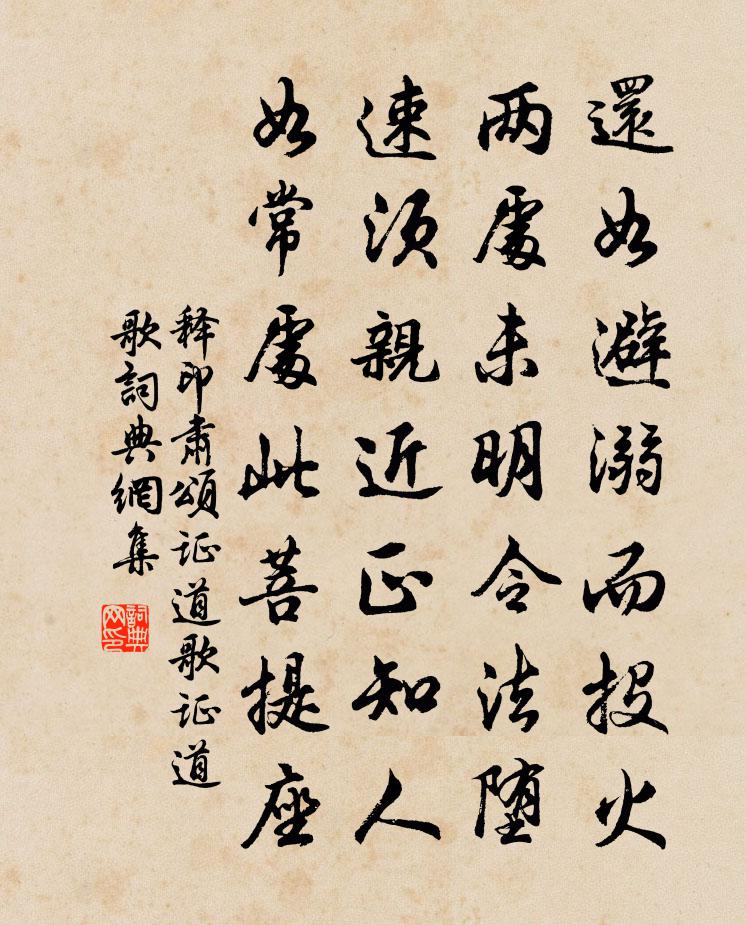 還如避溺而投火
两處未明令法堕
速须親近正知人
如常處此菩提座
释印肃頌证道歌证道
歌詞典網集
詞典网印